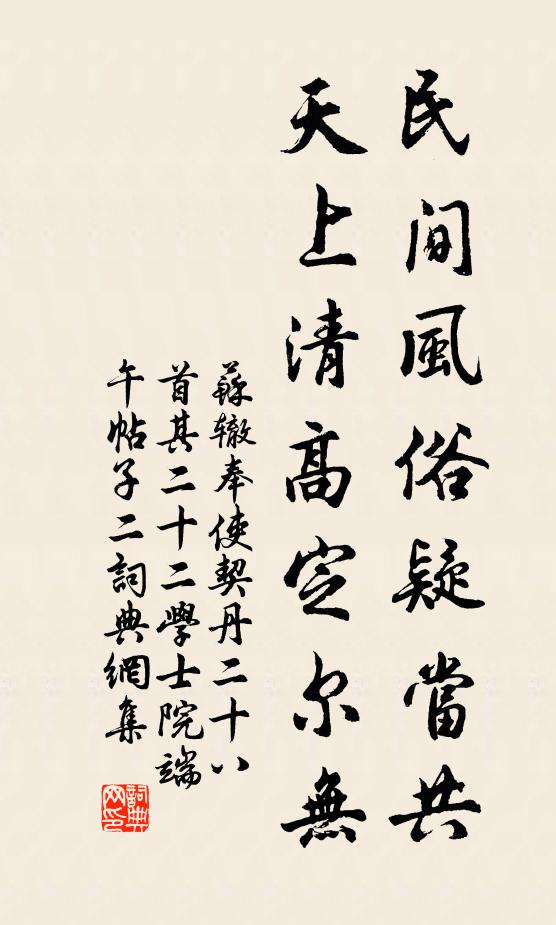 民間風俗疑當共
天上清高定尔無
蘇辙奉使契丹二十八
首其二十二學士院端
午帖子二詞典網集
詞典
网印